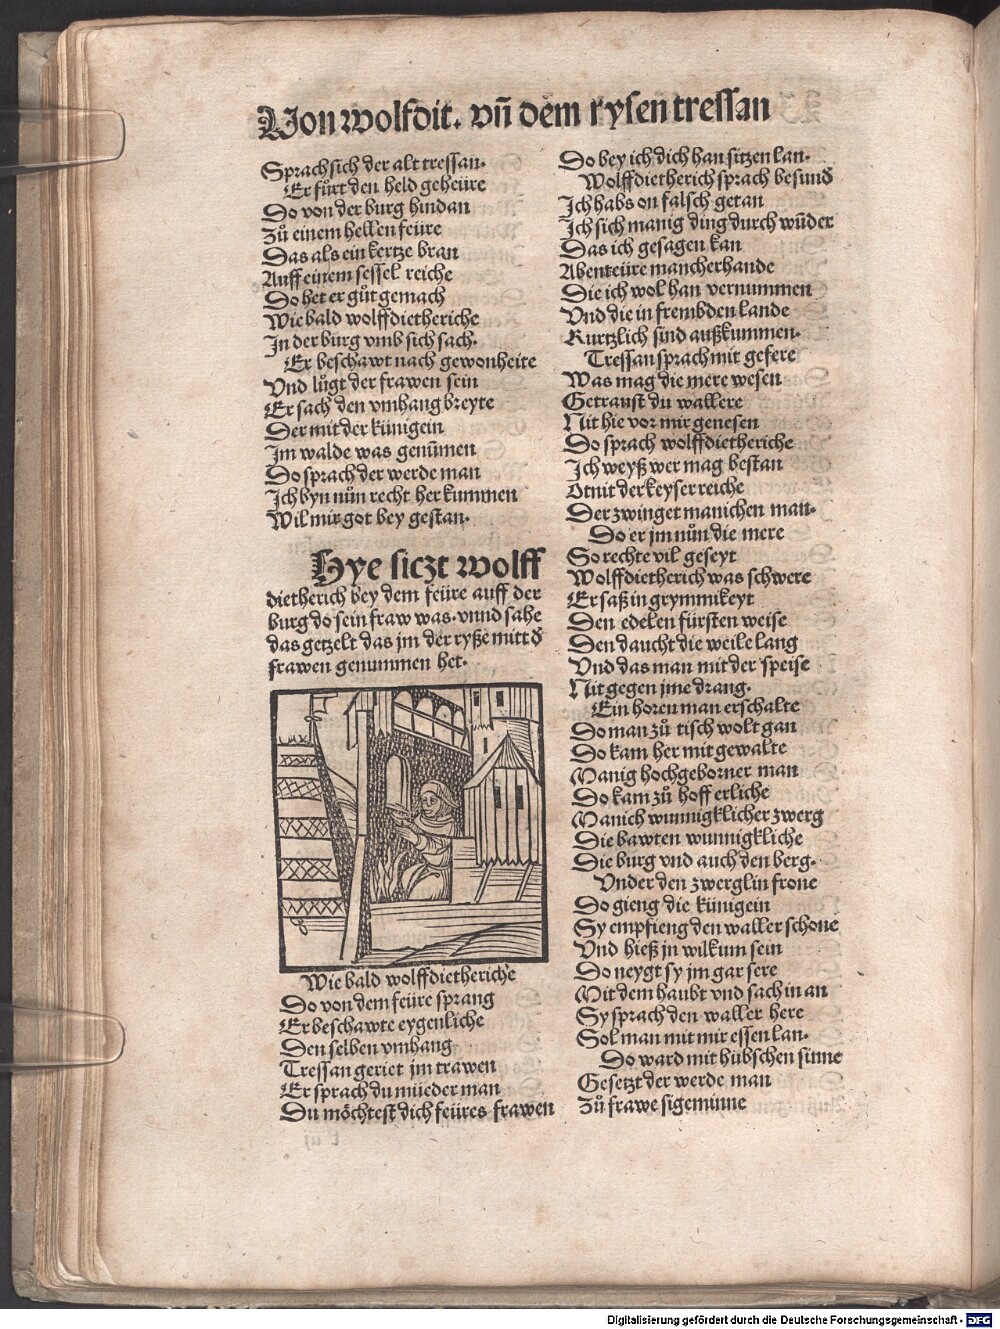 Von wolfdit. vñ dem rysen tressan
Sprach sich der alt tressan.
Er fürt den held geheüre
Do von der burg hindan
Zů einem hellen feüre
Das als ein kertze bran
Auff einem sessel reiche
Do het er gůt gemach
Wie bald wolffdietheriche
In der burg vmb sich sach.
Er beschawt nach gewonheite
Vnd lůgt der frawen sein
Er sach den vmhang breyte
Der mit der künigein
Im walde was genũmen
Do sprach der werde man
Ich byn nůn recht her kummen
Wil mir got bey gestan.
Hye siczt wolff
dietherich bey dem feüre auff der
burg do sein fraw was. vnnd sahe
das getzelt das jm der ryße mitt d̕
frawen genummen het.
Wie bald wolffdietheriche
Do von dem feüre sprang
Er beschawte eygenliche
Den selben vmhang
Tressan geriet jm trawen
Er sprach du müeder man
Du möchtest dich feüres frawen
Do bey ich dich han sitzen lan.
Wolffdietherich sprach besund̕
Ich habs on falsch getan
Ich sich manig ding durch wũder
Das ich gesagen kan
Abenteüre mancherhande
Die ich wol han vernummen
Vnd die in frembden lande
Kurtzlich sind außkummen.
Tressan sprach mit gefere
Was mag die mere wesen
Getraust du wallere
Nit hie vor mir genesen
Do sprach wolffdietheriche
Ich weyß wer mag bestan
Otnit der keyser reiche
Der zwinget manichen man.
Do er jm nůn die mere
So rechte vil geseyt
Wolffdietherich was schwere
Er saß in grymmikeyt
Den edelen fürsten weise
Den daucht die weile lang
Vnd das man mit der speise
Nit gegen jme drang.
Ein horen man erschalte
Do man zů tisch wolt gan
Do kam her mit gewalte
Manig hochgeborner man
Do kam zů hoff erliche
Manich wunnigklicher zwerg
Die bawten wunnigkliche
Die burg vnd auch den berg.
Vnder den zwerglin frone
Do gieng die künigein
Sy empfieng den waller schone
Vnd hieß jn wilkum sein
Do neygt sy jm gar sere
Mit dem haubt vnd sach in an
Sy sprach den waller here
Sol man mit mir essen lan.
Do ward mit hübschen sinne
Gesetzt der werde man
Zů frawe sigeminne
Digitalisierung gefördert durch die Deutsche Forschungsgemeinschaft - DFG